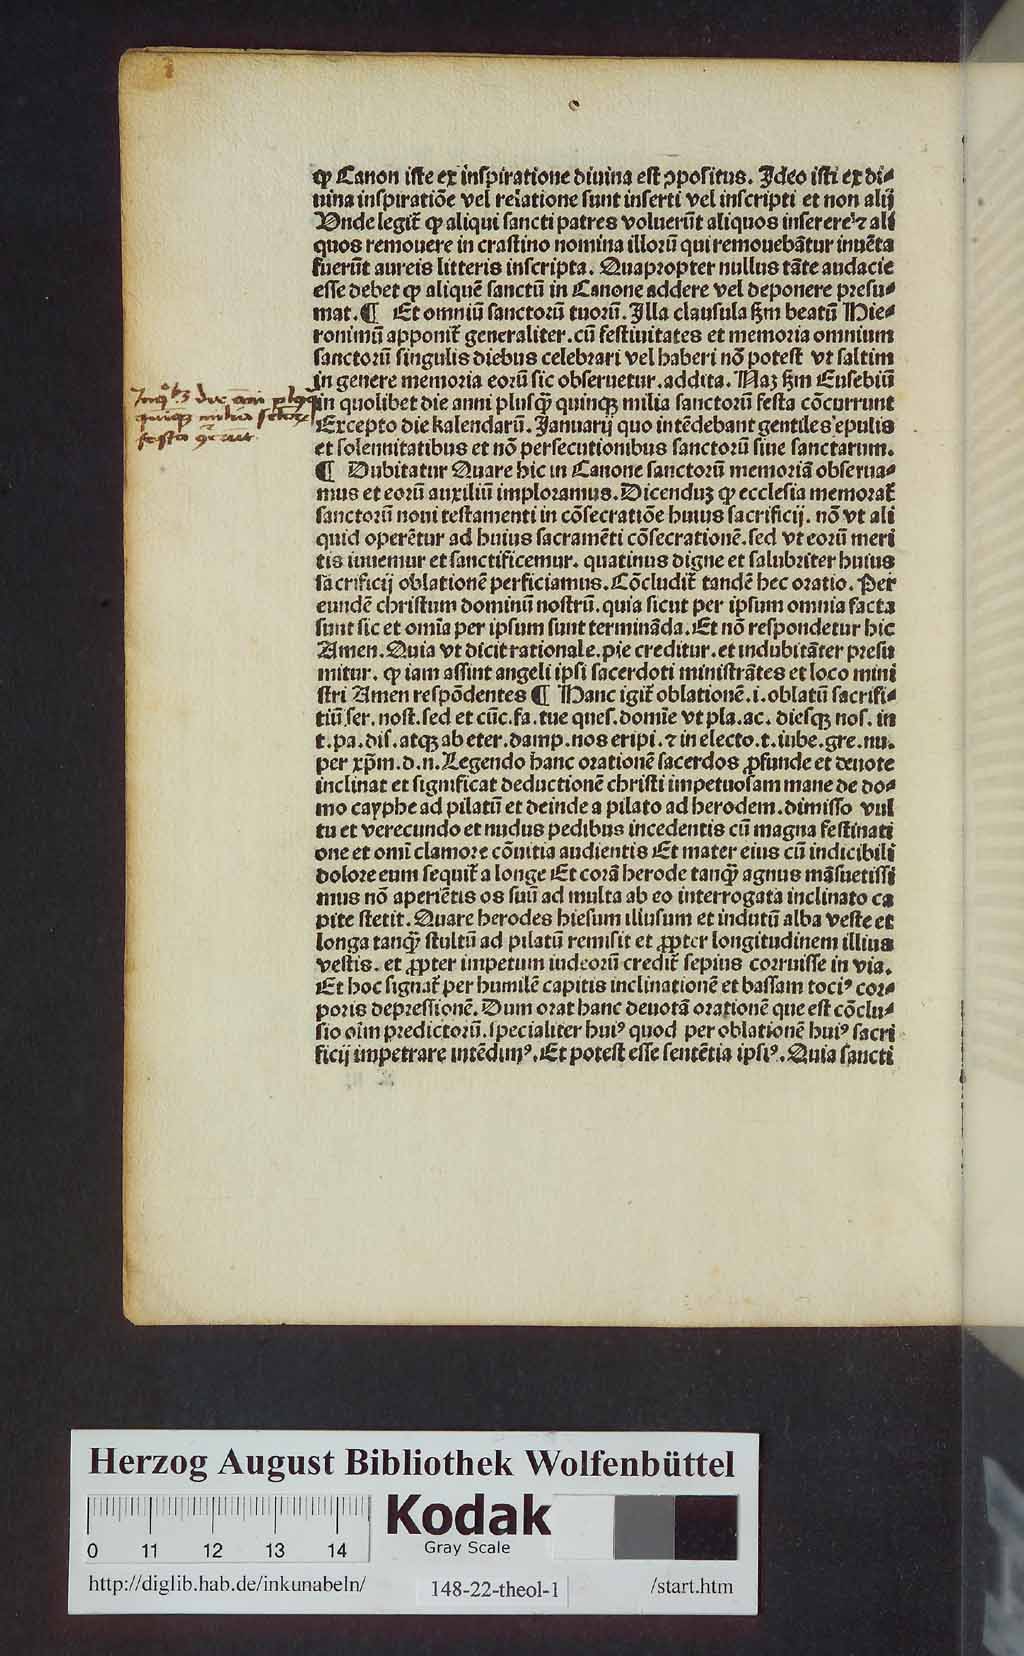 ꝙ Canon iste ex inspiratione diuina est ꝯpositus. Ideo isti ex di⸗
uina inspiratiōe vel reuelatione sunt inserti vel inscripti et non alij
Vnde legit᷑ ꝙ aliqui sancti patres voluerūt aliquos inserere ⁊ ali
quos remouere in crastino nomina illorū qui remouebātur inuēta
fuerūt aureis litteris inscripta. Quapropter nullus tāte audacie
esse debet ꝙ aliquē sanctū in Canone addere vel deponere presu⸗
mat. ¶ Et omniū sanctorū tuorū. Illa clausula ẜm beatū Hie⸗
ronimū apponit᷑ generaliter. cū festiuitates et memoria omnium
sanctorū singulis diebus celebrari vel haberi nō potest vt saltim
in genere memoria eorū sic obseruetur. addita. Naꝫ ẜm Eusebiū
in quolibet die anni plusq̄ꝫ quinqꝫ milia sanctorū festa cōcurrunt
Excepto die kalendarū. Januarij quo intēdebant gentiles epulis
et solennitatibus et nō persecutionibus sanctorū siue sanctarum.
¶ Dubitatur Quare hic in Canone sanctorū memoriā obserua⸗
mus et eorū auxiliū imploramus. Dicenduꝫ ꝙ ecclesia memorat᷑
sanctorū noui testamenti in cōsecratiōe huius sacrificij. nō vt ali
quid operētur ad huius sacramēti cōsecrationē. sed vt eorū meri
tis iuuemur et sanctificemur. quatinus digne et salubriter huius
sacrificij oblationē perficiamus. Cōcludit᷑ tandē hec oratio. Per
eundē christum dominū nostrū. quia sicut per ipsum omnia facta
sunt sic et om̄ia per ipsum sunt termināda. Et nō respondetur hic
Amen. Quia vt dicit rationale. pie creditur. et indubitāter presu
mitur. ꝙ iam assint angeli ipsi sacerdoti ministrātes et loco mini
stri Amen respōdentes ¶ Hanc igit᷑ oblationē. i. oblatū sacrifi⸗
tiū ser. nost. sed et cūc. fa. tue ques. domīe vt pla. ac. diesqꝫ nos. in
t. pa. dis. atqꝫ ab eter. damp. nos eripi. ⁊ in electo. t. iube. gre. nu.
per xp̄m. d. n. Legendo hanc orationē sacerdos ꝓfunde et deuote
inclinat et significat deductionē christi impetuosam mane de do⸗
mo cayphe ad pilatū et deinde a pilato ad herodem. dimisso vul
tu et verecundo et nudus pedibus incedentis cū magna festinati
one et omī clamore cōuitia audientis Et mater eius cū indicibili
dolore eum sequit᷑ a longe Et corā herode tanq̄ꝫ agnus māsuetissi
mus nō aperiētis os suū ad multa ab eo interrogata inclinato ca
pite stetit. Quare herodes hiesum illusum et indutū alba veste et
longa tanq̄ꝫ stultū ad pilatū remisit et ꝓpter longitudinem illius
vestis. et ꝓpter impetum iudeorū credit᷑ sepius corruisse in via.
Et hoc signat᷑ per humilē capitis inclinationē et bassam tociꝰ cor⸗
poris depressionē. Dum orat hanc deuotā orationē que est cōclu⸗
sio oīm predictorū. specialiter huiꝰ quod per oblationē huiꝰ sacri
ficij impetrare intēdimꝰ. Et potest esse sentētia ipsiꝰ. Quia sancti
quinqꝫ milia
festa
Herzog August Bibliothek Wolfenbüttel
0 11 12 13 14
Kodak
Gray Scale
http://diglib.hab.de/inkunabeln/ 148-22-theol-1 /start.htm